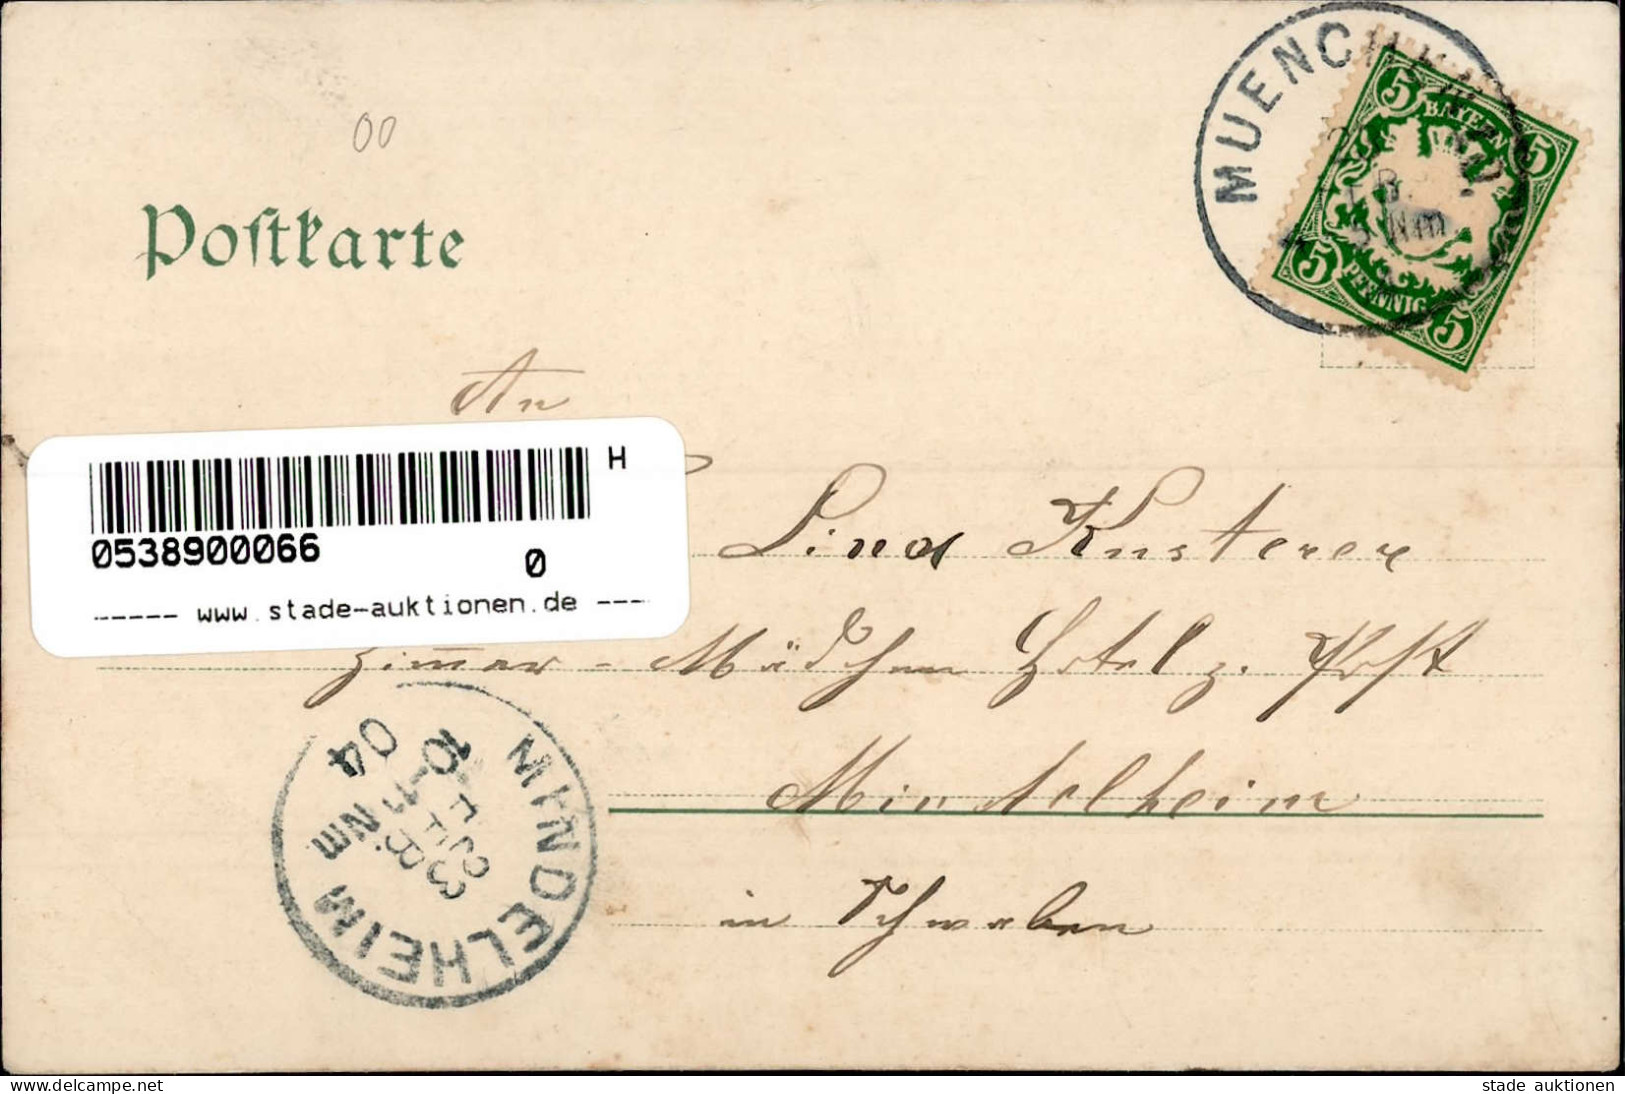 00
Postkarte
MUENCH
5 BAYERN 5
5 PFENNIG 5
Nm
An
H
0538900066
0
----- www.stade-auktionen.de ----
Lina Kusterer
Zimmer-Mädchen Hotel z. Post
Mindelheim
in Schwaben
MINDELHEIM
23 FEB.
10-11 Nm
04
www.delcampe.net
the_collector_1
stade auktionen